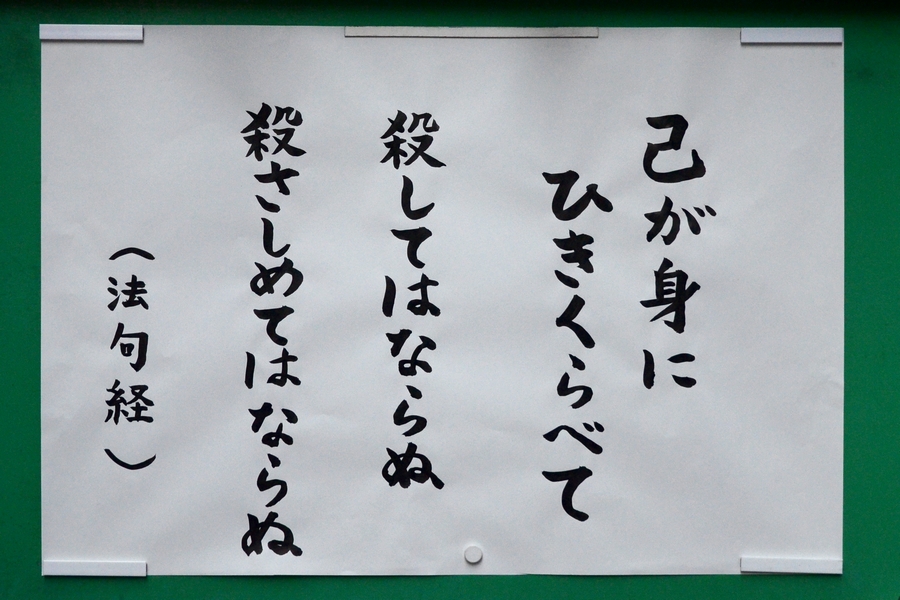 己が身に
ひきくらべて
殺してはならぬ
殺さしめてはならぬ
（法句経）